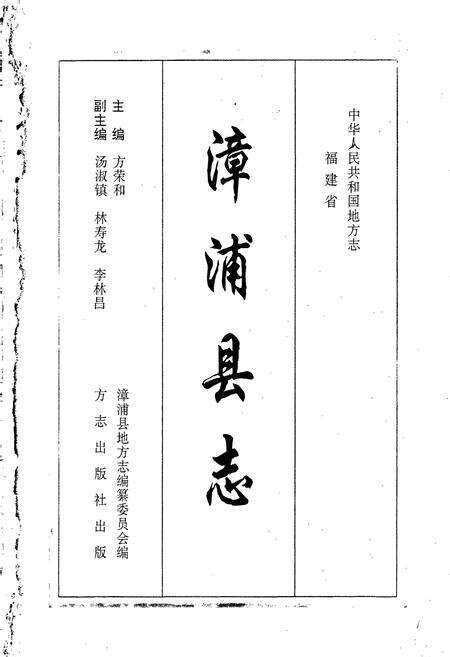 中华人民共和国地方志
福建省
漳浦县志
主编 方荣和
副主编 汤淑镇 林寿龙 李林昌
漳浦县地方志编纂委员会编
方志出版社出版